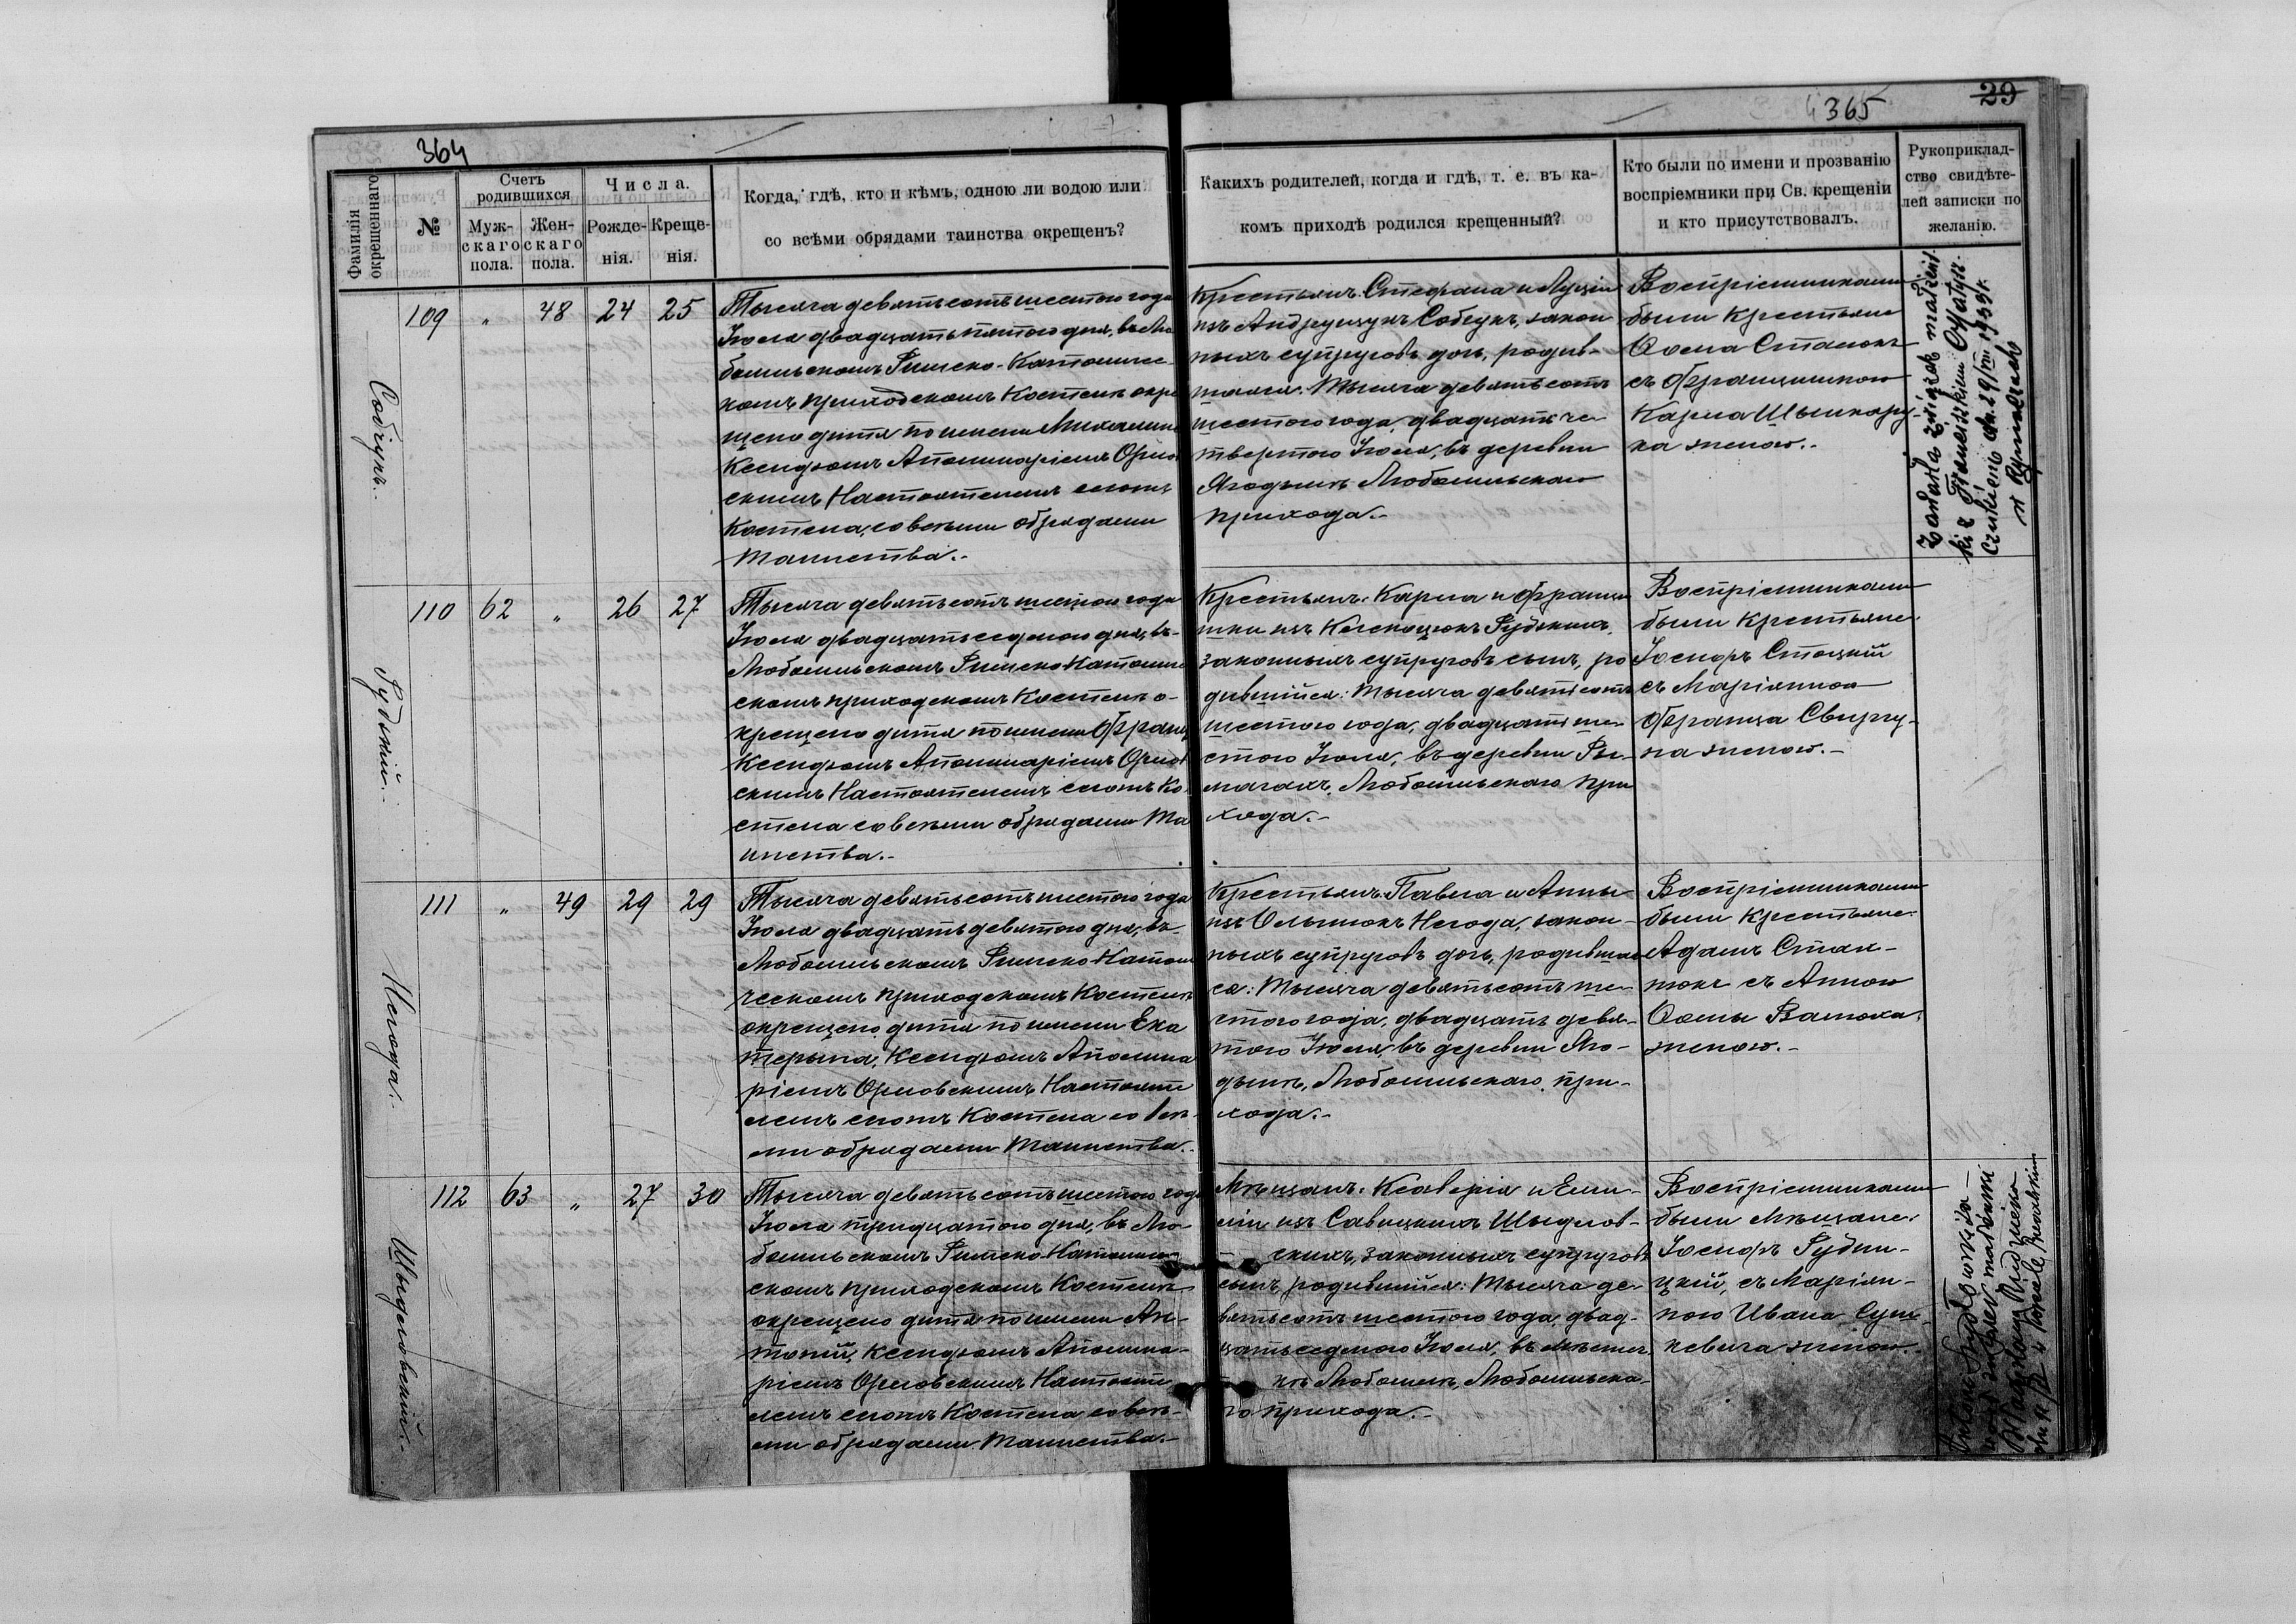 364
Фамилія
окрещеннаго
№
Счетъ
родившихся
Муж-
скаго
пола.
Жен-
скаго
пола.
Числа.
Рожде-
нія.
Креще-
нія.
Когда, гдѣ, кто и кѣмъ, одною ли водою или
со всѣми обрядами таинства окрещенъ?
365
29
Какихъ родителей, когда и гдѣ, т. е. въ ка-
комъ приходѣ родился крещенный?
Кто были по имени и прозванію
воспріемники при Св. крещеніи
и кто присутствовалъ.
Рукоприклад-
ство свидѣте-
лей записки по
желанію.
Собчукъ.
109 " 48 24 25
Тысяча девятьсотъ шестого года
Іюля двадцать пятого дня, въ Лю
бомльскомъ Римско-Католичес-
комъ приходскомъ Костелѣ окре
щено дитя по имени Михалина
Ксендзомъ Аполинаріемъ Орлов
скимъ Настоятелемъ сего жъ
Костела, со всѣми обрядами
Таинства.-
Крестьянъ: Стефана и Луціи
изъ Андрущукъ Собчукъ, закон
ныхъ супруговъ дочь, родив-
шаяся: Тысяча девятьсотъ
шестого года, двадцать че-
твертого Іюля, въ деревни
Ягодынѣ Любомльскаго
прихода.-
Воспріемниками
были Крестьяне
Ѳома Стасюкъ
съ Францишкою
Карла Шынкару-
ка женою.-
Zawarła związek małżeń
ki z Franciszkiem
dn. 29/VIII 1939 r.
w Rymaczach
Рудзкій.
110 62 " 26 27
Тысяча девятьсотъ шестого года
Іюля двадцать седмого дня, въ-
Любомльскомъ Римско-Католиче
скомъ приходскомъ Костелѣ о-
крещено дитя по имени Франц
Ксендзомъ Аполинаріемъ Орлов
скимъ Настоятелемъ сего жъ Ко
стела со всѣми обрядами Та
инства.-
Крестьянъ: Карла и Францы
шки изъ
законныхъ супруговъ сынъ, ро
дившійся: Тысяча девятьсотъ
шестого года, двадцать ше-
стого Іюля, въ деревни Ры-
мачахъ, Любомльскаго при
хода.-
Воспріемниками
были Крестьяне:
Іосифъ Стоцкій
съ Маріянною
Франца Свиргу-
на женою.-
Негода.
111 " 49 29 29
Тысяча девятьсотъ шестого года
Іюля двадцать девятого дня, въ
Любомльскомъ Римско-Католи
ческомъ приходскомъ Костелѣ
окрещено дитя по имени Ека
терына, Ксендзомъ Аполина
ріемъ Орловскимъ Настояте
лемъ сего жъ Костела со всѣ-
ми обрядами Таинства.-
Крестьянъ: Павла и Анны
изъ Негода, закон-
ныхъ супруговъ дочь, родившая
ся: Тысяча девятьсотъ ше-
стого года, двадцать девя-
того Іюля, въ деревни Яго-
дынѣ, Любомльскаго при-
хода.-
Воспріемниками
были Крестьяне:
Адамъ
съ Анною
Ѳомы
женою.-
Шыдловскій.
112 63 " 27 30
Тысяча девятьсотъ шестого года
Іюля тридцатого дня, въ Лю-
бомльскомъ Римско-Католиче-
скомъ приходскомъ Костелѣ
окрещено дитя по имени Ан-
тоній, Ксендзомъ Аполина-
ріемъ Орловскимъ Настояте
лемъ сего жъ Костела со всѣ-
ми обрядами Таинства.-
Мѣщанъ: Ксаверія и Еми-
ліи изъ Савицкихъ Шыдлов-
скихъ, законныхъ супруговъ
сынъ, родившійся: Тысяча де-
вятьсотъ шестого года, двад-
цать седмого Іюля, въ мѣстеч
кѣ Любомлѣ, Любомльска-
го прихода.-
Воспріемниками
были Мѣщане:
Іосифъ Рудни-
цкій, съ Маріян-
ною Ивана
женою.-
Antoni Szydłowski